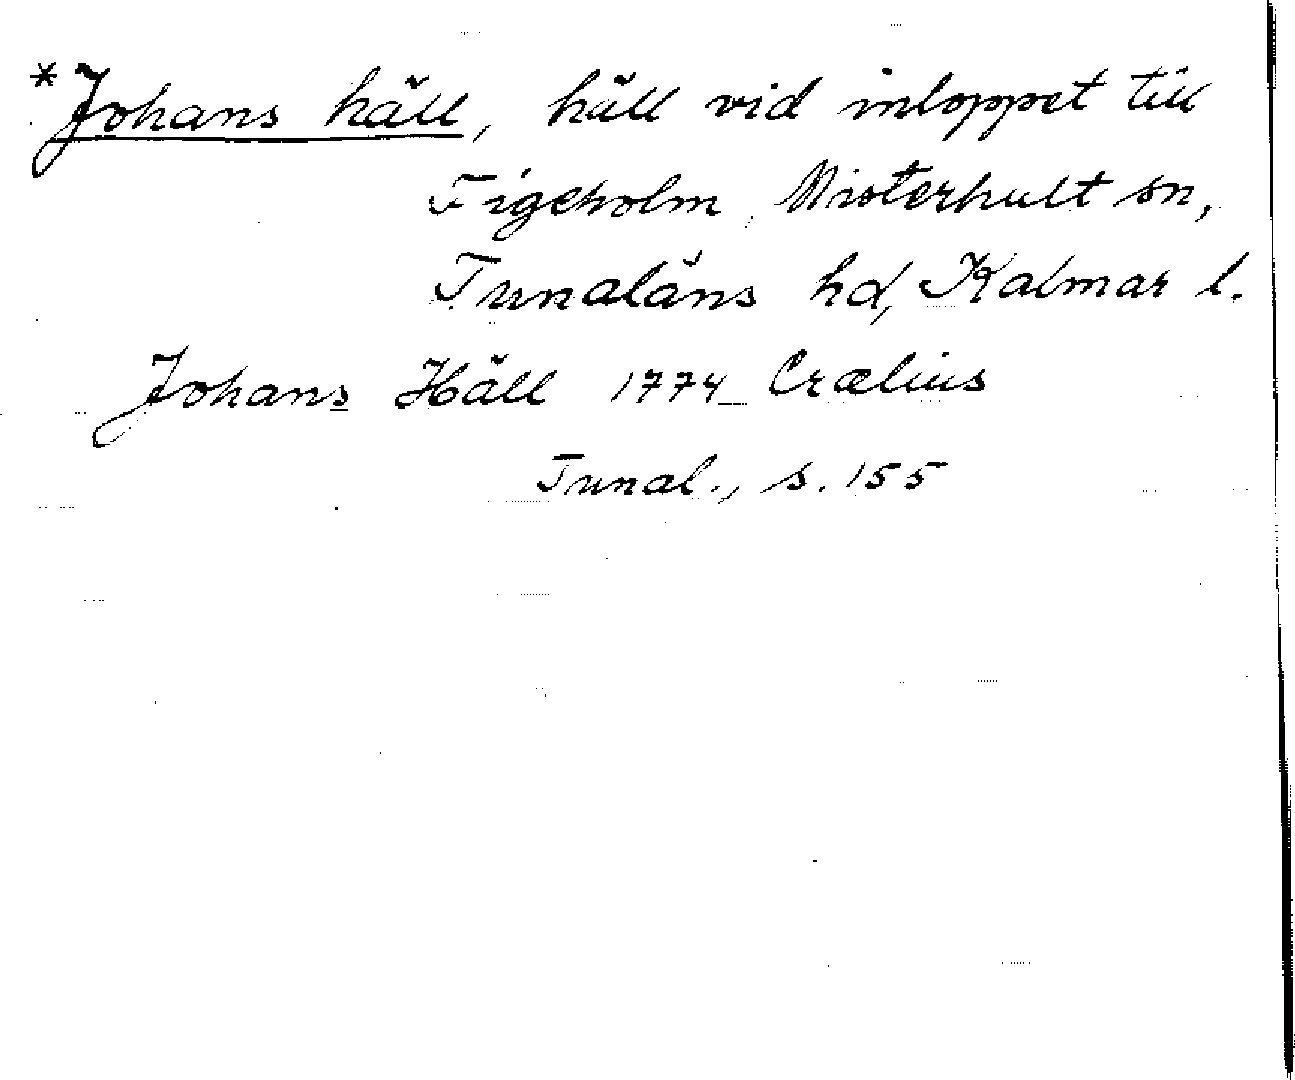 *Johans häll, häll vid inloppet till
Figeholm, Misterhult sn,
Tunaläns hd, Kalmar l.
Johans Häll 1774 Crælius
Tunal., s. 155